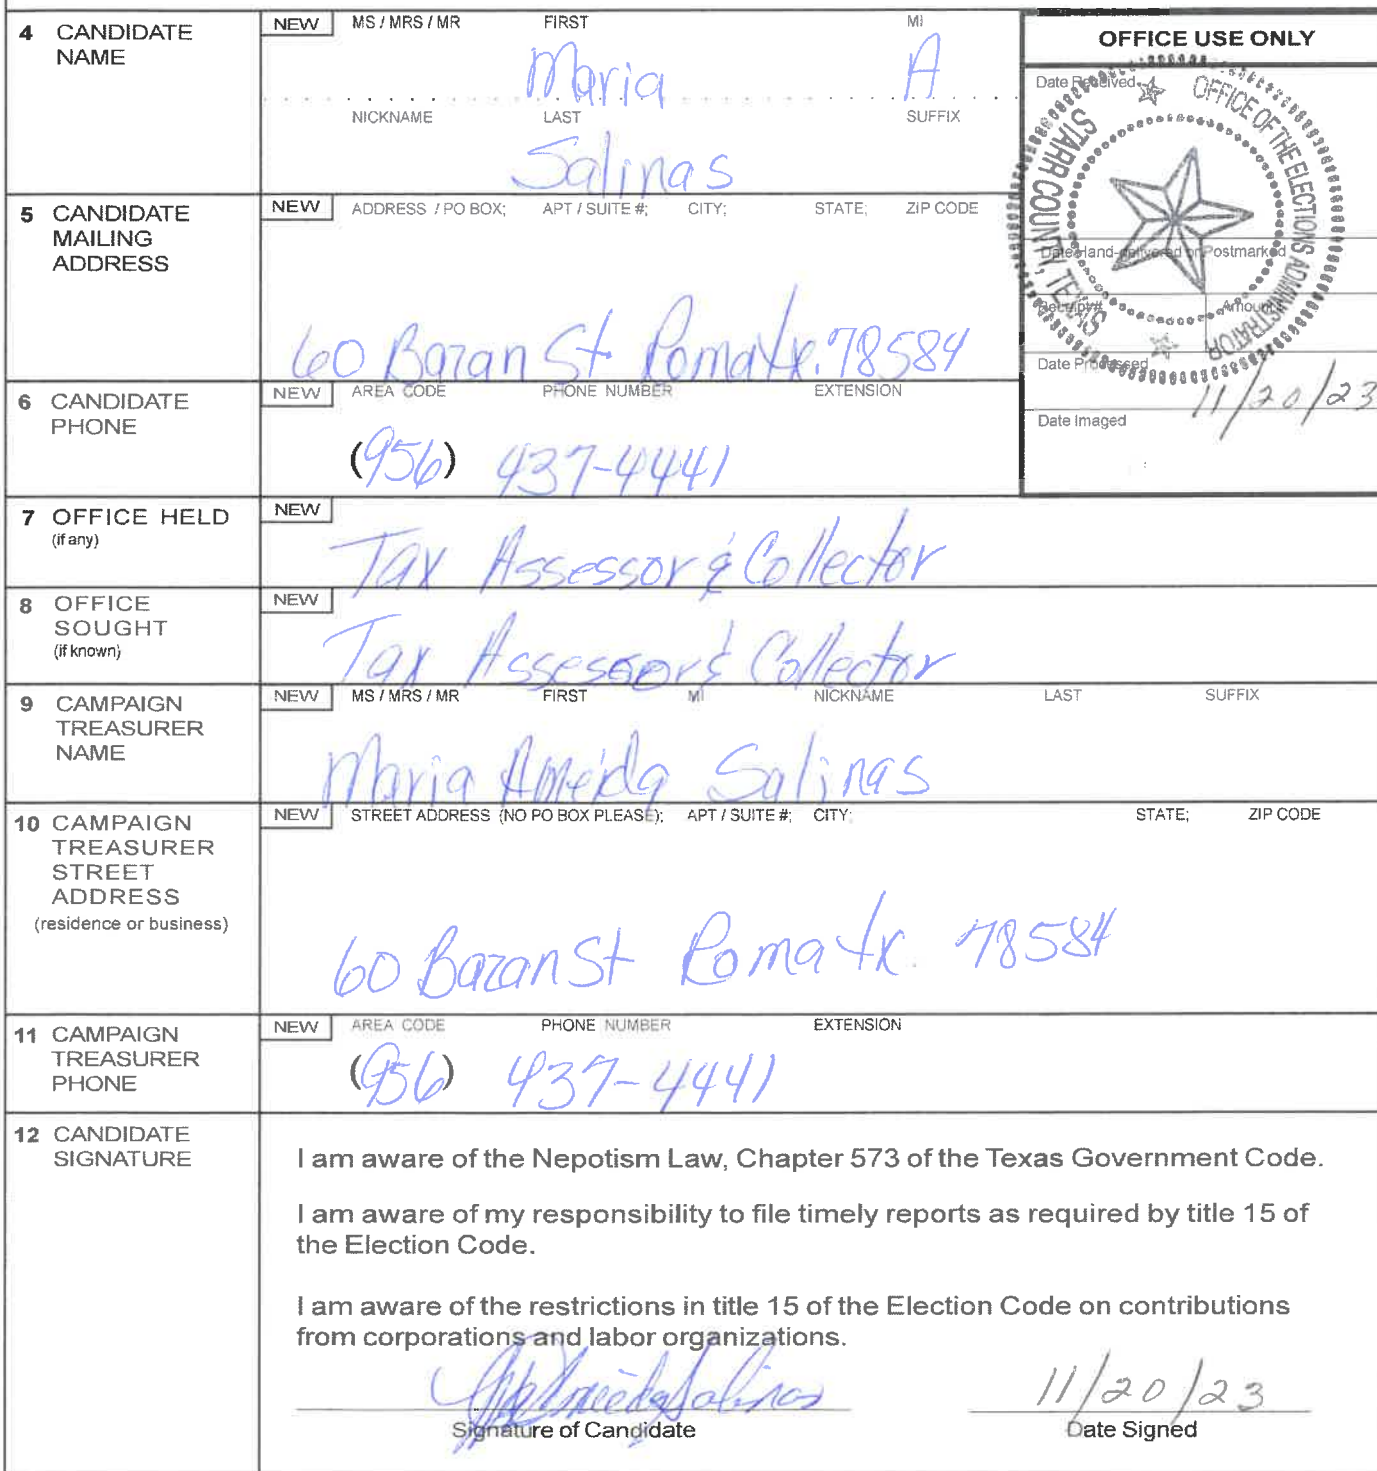 4 CANDIDATE NAME
NEW MS / MRS / MR FIRST MI
Maria A
NICKNAME LAST SUFFIX
Salinas
OFFICE USE ONLY
Date Received
OFFICE OF THE ELECTIONS ADMINISTRATOR
STARR COUNTY, TEXAS
Date Hand-delivered or Postmarked
Receipt # Amount
Date Processed
11/20/23
Date Imaged
5 CANDIDATE MAILING ADDRESS
NEW ADDRESS / PO BOX; APT / SUITE #; CITY; STATE; ZIP CODE
60 Bazan St Roma tx. 78584
6 CANDIDATE PHONE
NEW AREA CODE PHONE NUMBER EXTENSION
(956) 437-4441
7 OFFICE HELD
(if any)
NEW
Tax Assessor & Collector
8 OFFICE SOUGHT
(if known)
NEW
Tax Assessor & Collector
9 CAMPAIGN TREASURER NAME
NEW MS / MRS / MR FIRST MI NICKNAME LAST SUFFIX
Maria Ameida Salinas
10 CAMPAIGN TREASURER STREET ADDRESS
(residence or business)
NEW STREET ADDRESS (NO PO BOX PLEASE); APT / SUITE #; CITY; STATE; ZIP CODE
60 Bazan St Roma tx. 78584
11 CAMPAIGN TREASURER PHONE
NEW AREA CODE PHONE NUMBER EXTENSION
(956) 437-4441
12 CANDIDATE SIGNATURE
I am aware of the Nepotism Law, Chapter 573 of the Texas Government Code.
I am aware of my responsibility to file timely reports as required by title 15 of
the Election Code.
I am aware of the restrictions in title 15 of the Election Code on contributions
from corporations and labor organizations.
Salinas 11/20/23
Signature of Candidate Date Signed